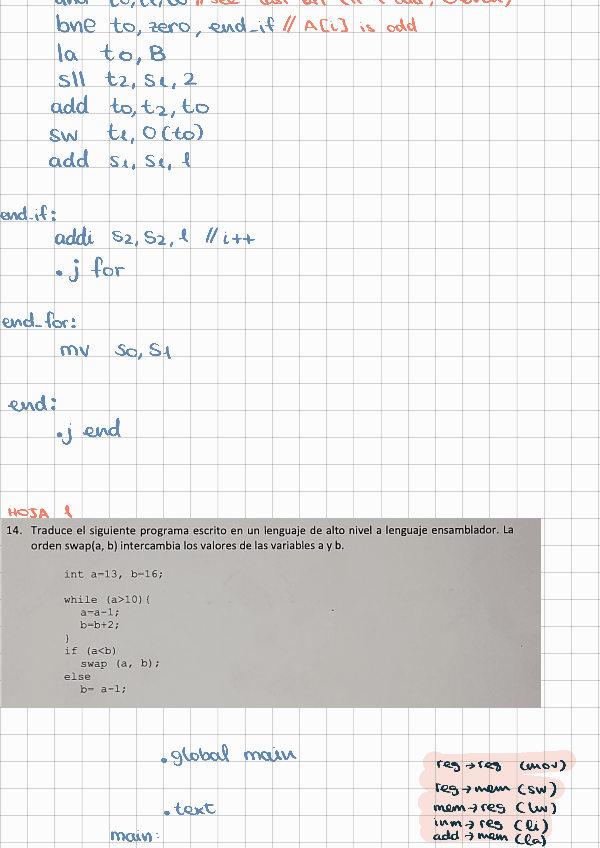 bne t0, zero, end_if // A[i] is odd
la t0, B
sll t2, s1, 2
add t0, t2, t0
sw t1, 0(t0)
add s1, s1, 1
end_if:
addi s2, s2, 1 // i++
.j for
end_for:
mv s0, s1
end:
.j end
HOJA 1
14. Traduce el siguiente programa escrito en un lenguaje de alto nivel a lenguaje ensamblador. La
orden swap(a, b) intercambia los valores de las variables a y b.
int a=13, b=16;
while (a>10){
a=a-1;
b=b+2;
}
if (a<b)
swap (a, b);
else
b= a-1;
.global main
reg → reg (mov)
reg → mem (sw)
.text
mem → reg (lw)
inm → reg (li)
main:
add → mem (la)